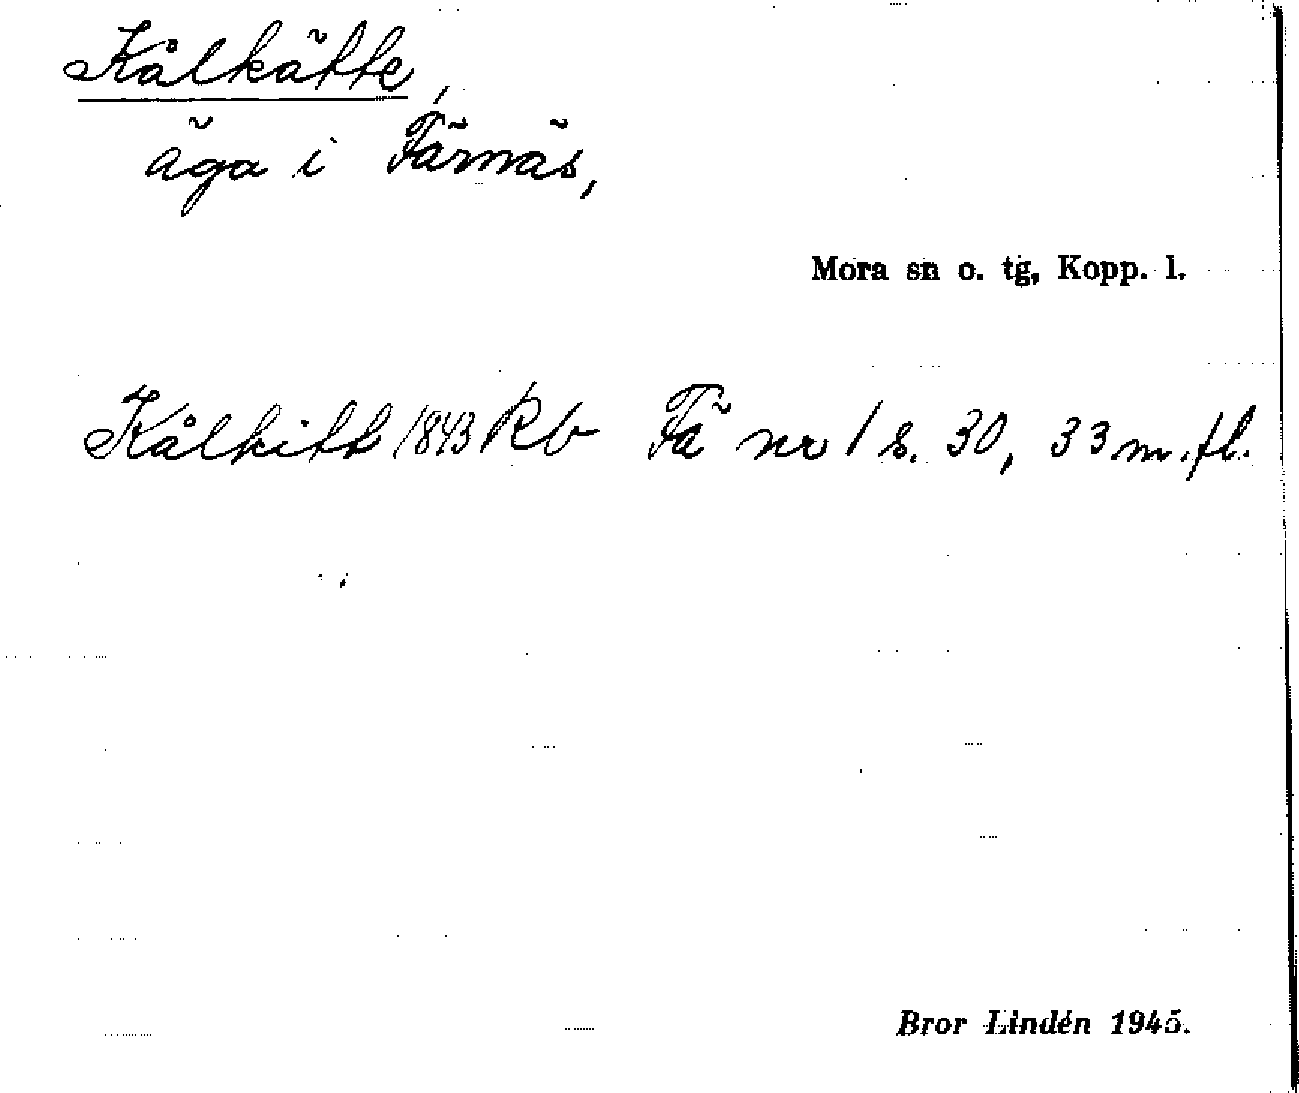 Kålkätte,
äga i Färnäs,
Mora sn o. tg, Kopp. l.
Kålkitt 1843 Rb Fä nr 1 s. 30, 33 m.fl.
Bror Lindén 1945.